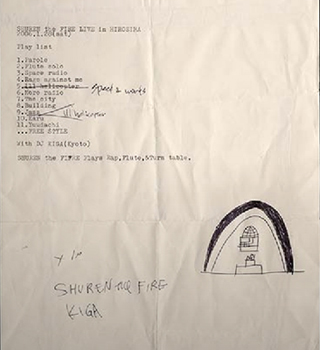 SHUREN the FIRE LIVE in HIROSIMA
Play list
1.Parole
2.Flute solo
3.Space radio
4.Ears against me
5.Ill helicopter Space 2 wants
6.More radio
7.The city
8.Building
9.Jazz Ill helicopter
10.Earu
11.Yuudachi
...FREE STYLE
With DJ KIGA(Kyoto)
SHUREN the FIFRE Plays Rap,Flute,&Turn table.
SHUREN THE FIRE
KIGA